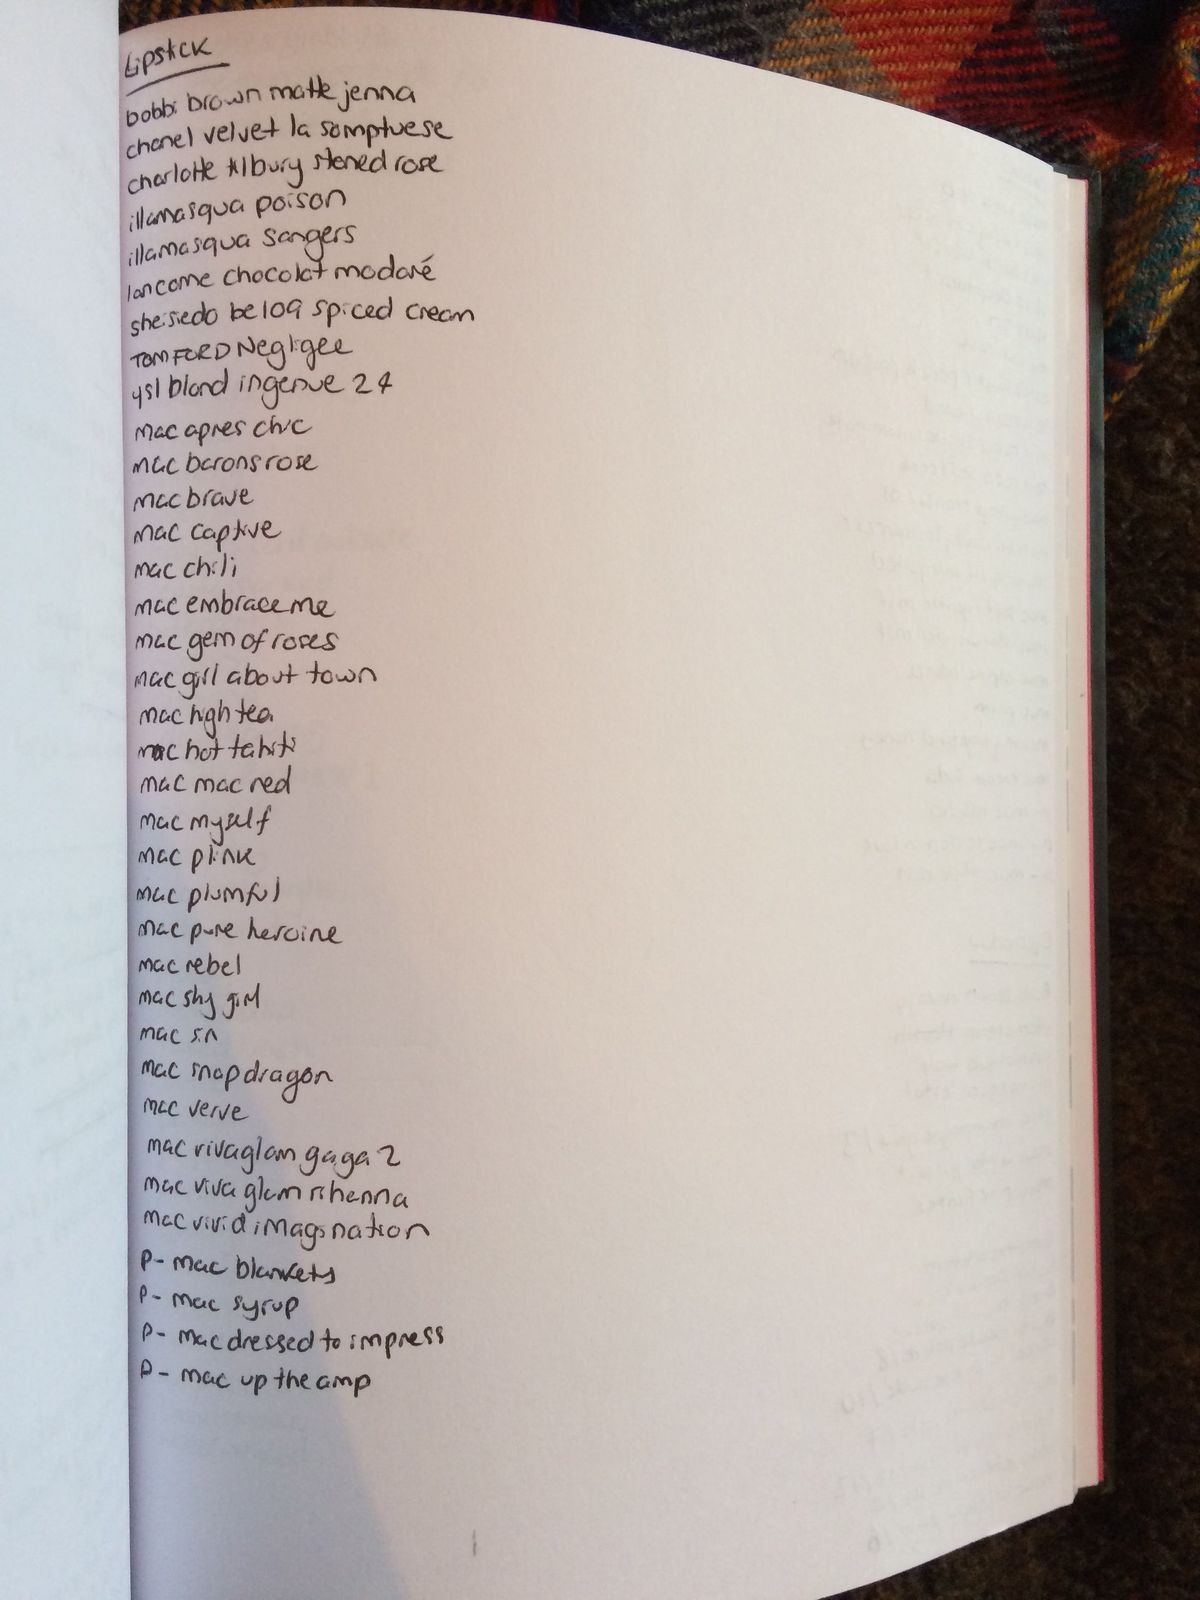 Lipstick
bobbi brown matte jenna
chanel velvet la somptuese
charlotte tilbury stoned rose
illamasqua poison
illamasqua sangers
lancome chocolat modoré
sheisiedo be109 spiced cream
TOM FORD Negligee
ysl blond ingenue 24
mac apres chic
mac barons rose
mac brave
mac captive
mac chili
mac embrace me
mac gem of roses
mac girl about town
mac high tea
mac hot tahiti
mac mac red
mac myself
mac plink
mac plumful
mac pure heroine
mac rebel
mac shy girl
mac sin
mac snapdragon
mac verve
mac viva glam gaga 2
mac viva glam rihenna
mac vivid imagination
P- mac blankety
P- mac syrup
P- mac dressed to impress
P- mac up the amp